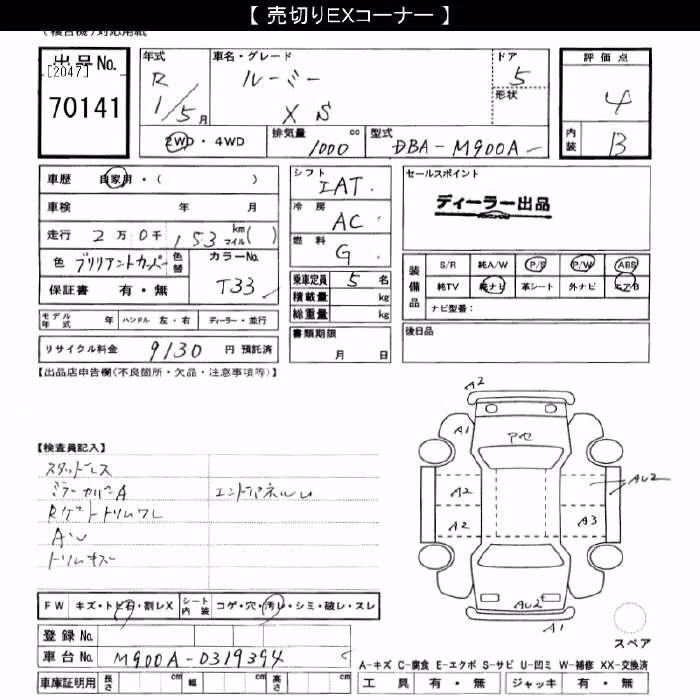 【 売切りEXコーナー 】
(複合機)対応用紙
出品No.
[2047]
70141
年式
R
1/5月
車名・グレード
ルーミー
XS
ドア
5
形状
評価点
4
内装
B
2WD・4WD
排気量 1000 cc
型式 DBA-M900A-
車歴 自家用・( )
車検 年 月
走行 2万0千153 km マイル( )
色 ブリリアントカッパー 色替
カラーNo. T33
保証書 有・無
シフト
IAT
冷房
AC
燃料
G
乗車定員 5 名
積載量 kg
総重量 kg
書類期限
月 日
セールスポイント
ディーラー出品
装備品
S/R 純A/W P/S P/W ABS
純TV 純ナビ 革シート 外ナビ エアB
ナビ型番:
後日品
モデル年式 年 ハンドル 左・右 ディーラー・並行
リサイクル料金 9130 円 預託済
【出品店申告欄(不良箇所・欠品・注意事項等)】
【検査員記入】
スタッドレス
ミラーカバーA
エンドパネルU
Rゲートトリムワレ
AU
トリムキズ
FW キズ・トビ石・割レX シート内装 コゲ・穴・汚レ・シミ・破レ・スレ
登録No.
車台No. M900A-0319394
車庫証明用 長さ cm 幅 cm 高さ cm
A2
A1
アセ
A2
A2
AU2
A3
AU2
A1
スペア
A-キズ C-腐食 E-エクボ S-サビ U-凹ミ W-補修 XX-交換済
工具 有・無 ジャッキ 有・無